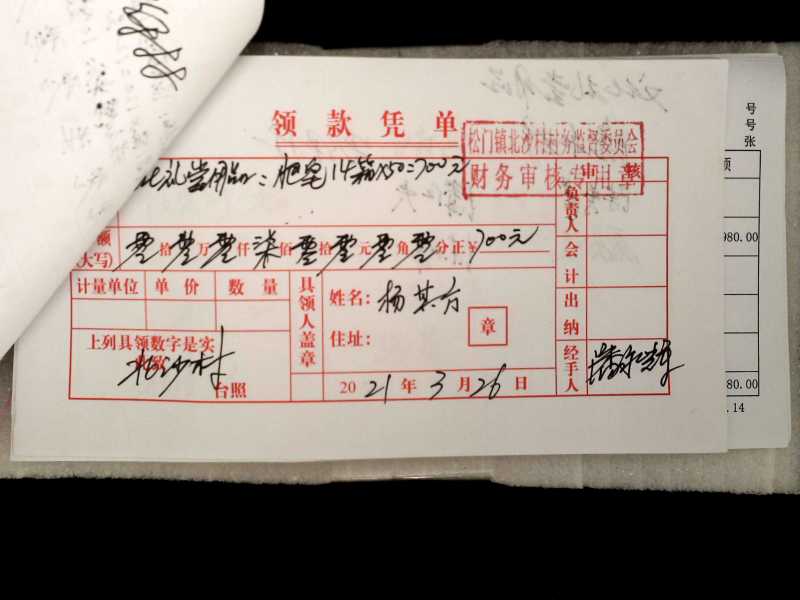 领款凭单
松门镇北沙村村务监督委员会
财务审核专用章
礼堂用品：肥皂14箱×50=700元
审核
负责人
额
(大写) 零拾零万零仟柒佰零拾零元零角零分正¥700元
会计
计量单位 单价 数量
具领人盖章
姓名：杨其方
住址：
章
出纳
上列具领数字是实
北沙村
台照
2021年3月26日
经手人
号
号
张
额
980.00
80.00
.14